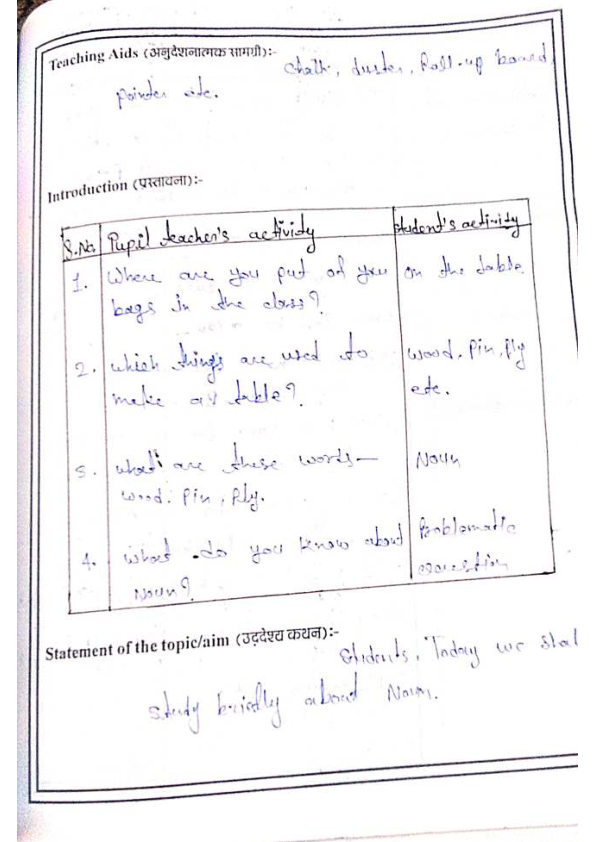 Teaching Aids (अनुदेशनात्मक सामग्री):- Chalk, duster, Roll-up board,
pointer etc.
Introduction (प्रस्तावना):-
S.No. Pupil teacher's activity student's activity
1. Where are you put of you on the table.
bags in the class?
2. which things are used to wood, Pin, Ply
make a table? etc.
3. what are these words— Noun
wood, Pin, Ply.
4. what do you know about Problematic
Noun?
Statement of the topic/aim (उद्देश्य कथन):- Students, Today we
study briefly about Noun.